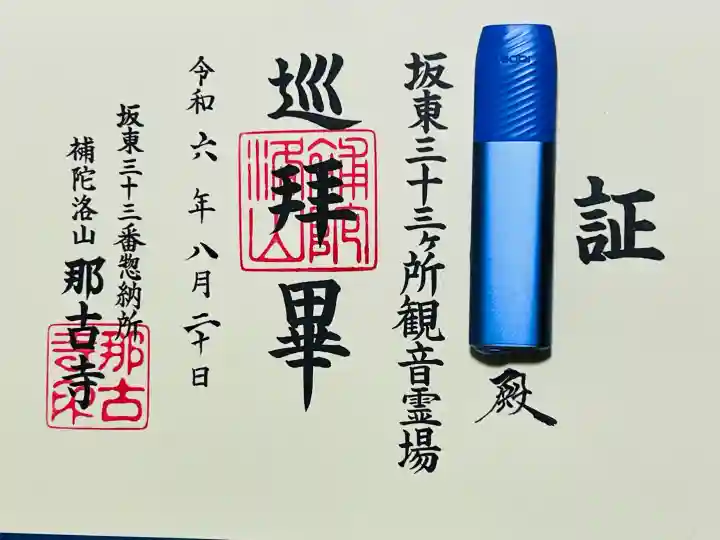 証
殿
坂東三十三ヶ所観音霊場
巡拝畢
令和六年八月二十日
坂東三十三番惣納所
補陀洛山那古寺
補陀
洛山
那古